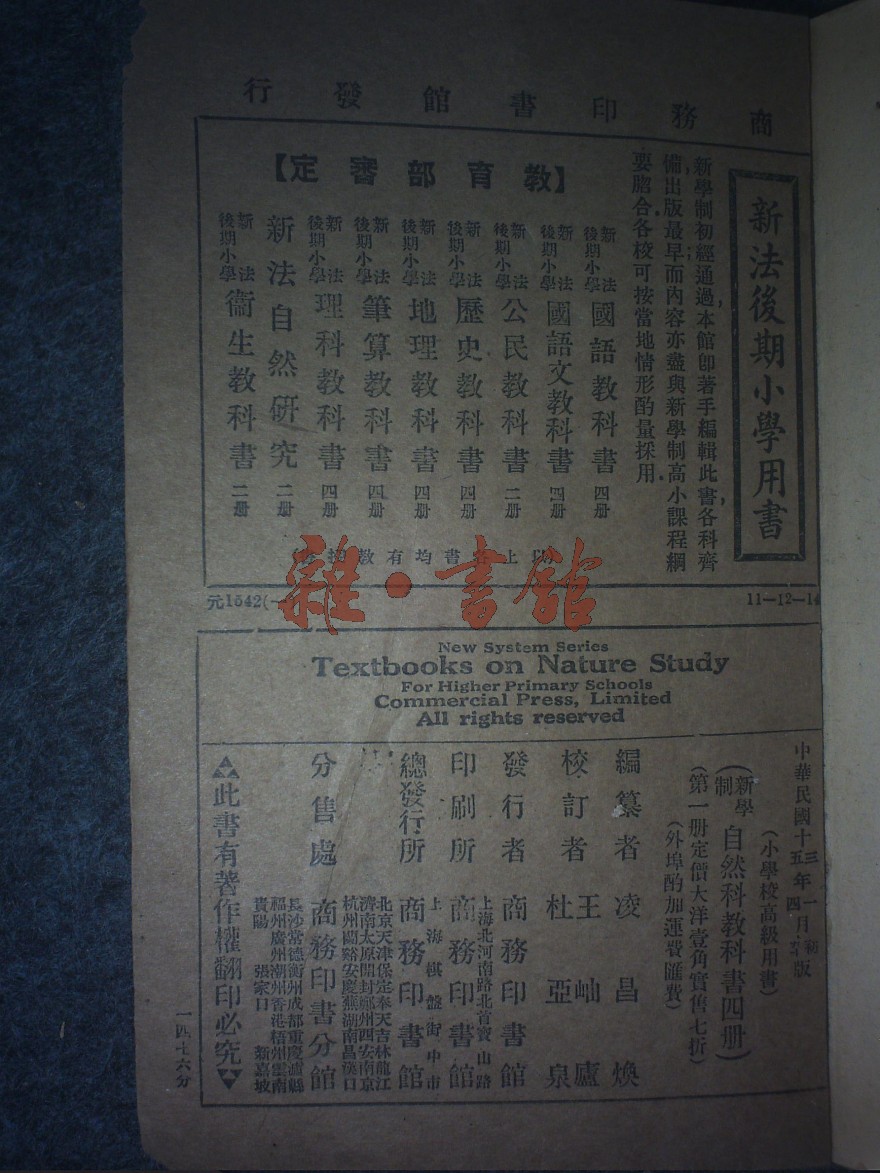 商務印書館發行
新法後期小學用書
新學制初經通過，本館卽著手編輯此書，各科齊
備；出版最早，而內容亦盡與新學制高小課程綱
要脗合，各校可按當地情形酌量採用。
【教育部審定】
新法後期小學國語教科書 四册
新法後期小學國語文教科書 四册
新法後期小學公民教科書 二册
新法後期小學歷史教科書 四册
新法後期小學地理教科書 四册
新法後期小學筆算教科書 四册
新法後期小學理科教科書 四册
新法自然研究 二册
新法後期小學衞生教科書 二册
以上各書均有教授
雜·書館
元1542(一
11—12—14
New System Series
Textbooks on Nature Study
For Higher Primary Schools
Commercial Press, Limited
All rights reserved
中華民國十三年一月初版
十五年四月
(小學校高級用書)
(新學制自然科教科書四册)
(第一册定價大洋壹角實售七折)
(外埠酌加運費匯費)
編纂者 凌昌煥
校訂者 王岫廬
杜亞泉
發行者 商務印書館
上海北河南路北首寶山路
印刷所 商務印書館
上海棋盤街中市
總發行所 商務印書館
北京天津保定奉天吉林龍江
濟南太原開封鄭州西安南京
杭州蘭谿安慶蕪湖南昌漢口
分售處 商務印書分館
長沙常德衡州成都重慶瀘縣
福州廣州潮州香港梧州雲南
貴陽 張家口 新嘉坡
此書有著作權翻印必究
一四七六分